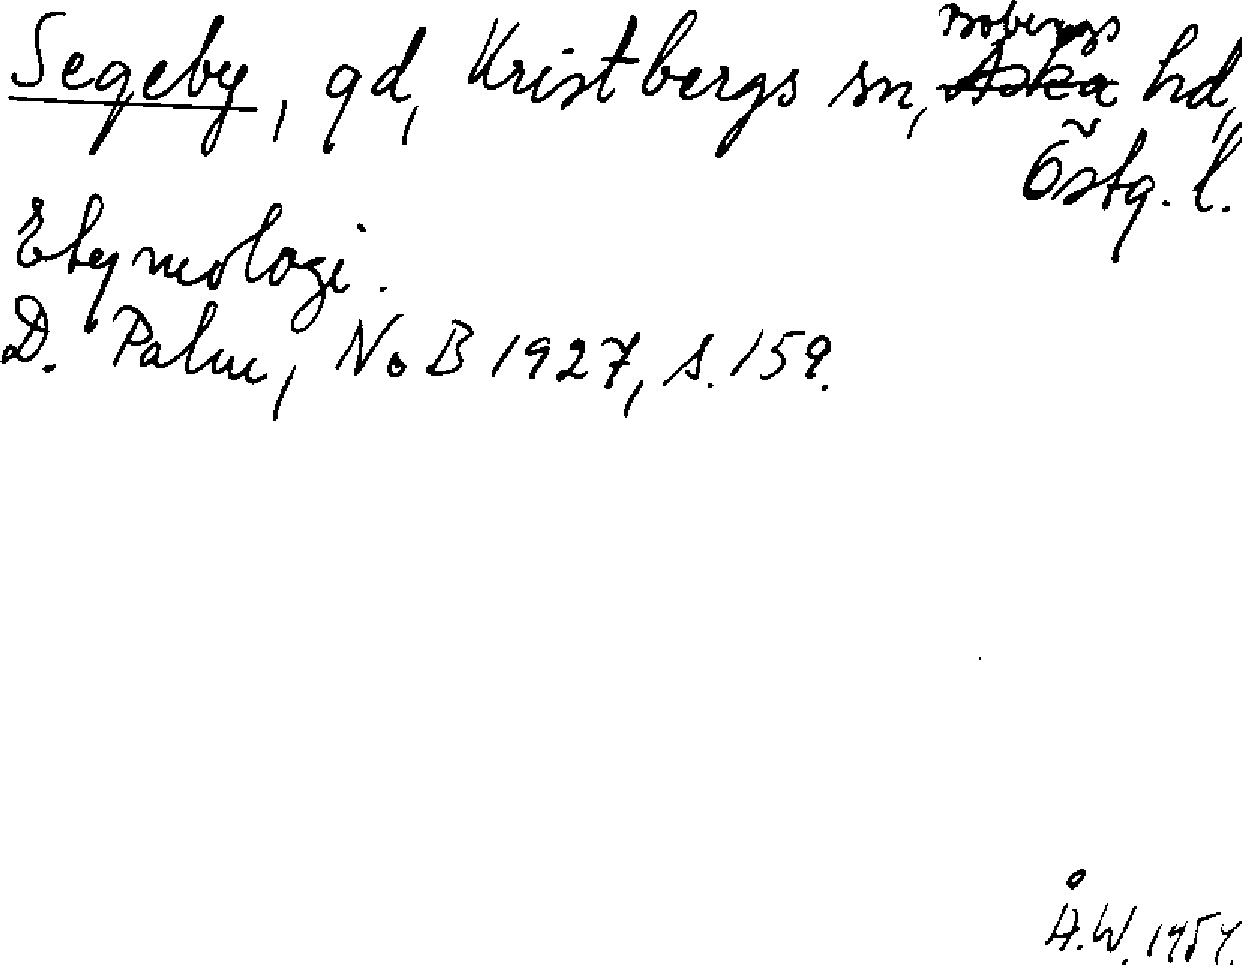 Segeby, gd, Kristbergs sn, Bobergs ~~Aska~~ hd,
Östg. l.
Etymologi.
D. Palm, NoB 1927, s. 159.
Å.W. 1954.